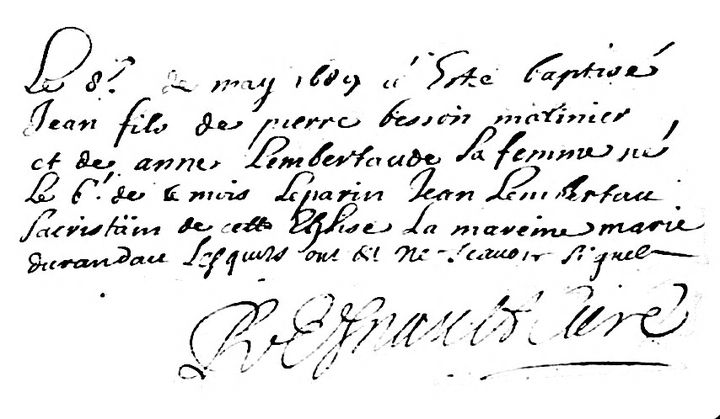 Le 8.e de may 1689 a Esté baptisé
Jean fils de pierre besson matinier
et de anne Lembertaude sa femme né
Le 6.e de ce mois Leparin Jean Lembertau
Sacristain de cette Eglise La mareine marie
durandau Lesquels ont dit ne Scavoir Signer
Curé